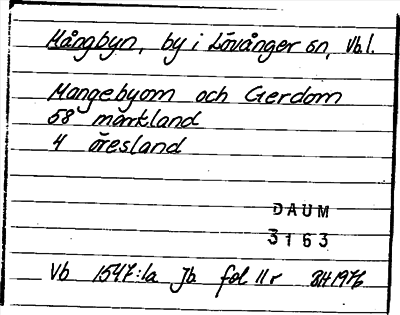 Mångbyn, by i Lövånger sn, Vb l.
Mangebyom och Gerdom
58 markland
4 öresland
DAUM
3163
Vb 1547:1a Jb fol 11 r BH 1976